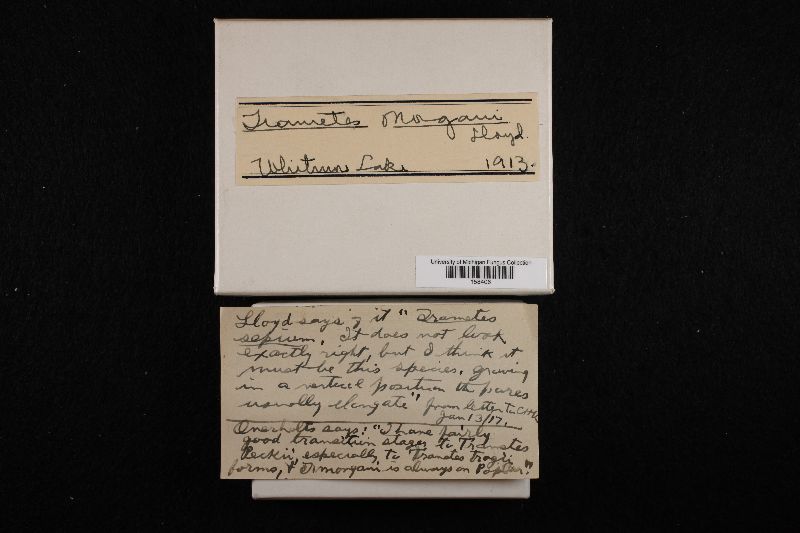 Trametes Morgani
Lloyd.
Whitmore Lake 1913.
University of Michigan Fungus Collection
Lloyd says of it "Trametes
sepium. It does not look
exactly right, but I think it
must be this species, growing
in a vertical position the pores
usually elongate" from letter to
Jan 13/17.
Overholts says: "I have fairly
good transition stages to Trametes
Peckii, especially to Trametes trogii
forms, & Tr morgani is always on Poplar."